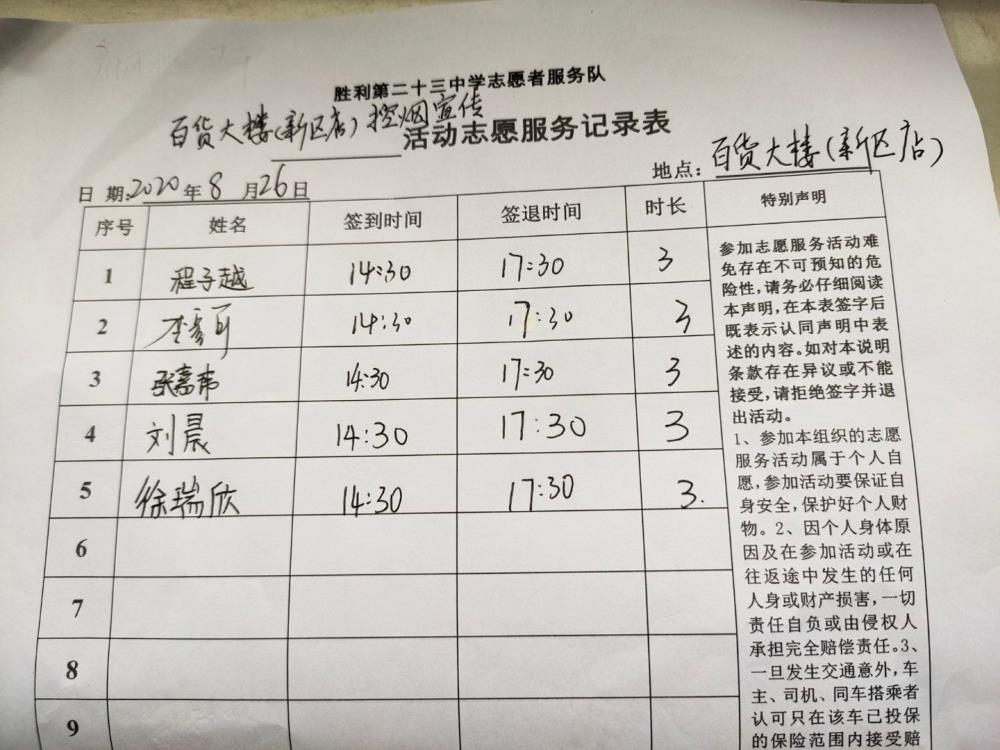 胜利第二十三中学志愿者服务队
百货大楼(新区店)控烟宣传
活动志愿服务记录表
日 期:2020年8月26日
地点:百货大楼(新区店)
序号 姓名 签到时间 签退时间 时长 特别声明
1 程子越 14:30 17:30 3
2 李彦可 14:30 17:30 3
3 张嘉 14:30 17:30 3
4 刘晨 14:30 17:30 3
5 徐瑞欣 14:30 17:30 3.
6
7
8
9
参加志愿服务活动难
免存在不可预知的危
险性,请务必仔细阅读
本声明,在本表签字后
既表示认同声明中表
述的内容。如对本说明
条款存在异议或不能
接受,请拒绝签字并退
出活动。
1、参加本组织的志愿
服务活动属于个人自
愿,参加活动要保证自
身安全,保护好个人财
物。2、因个人身体原
因及在参加活动或在
往返途中发生的任何
人身或财产损害,一切
责任自负或由侵权人
承担完全赔偿责任。3、
一旦发生交通意外,车
主、司机、同车搭乘者
认可只在该车已投保
的保险范围内接受赔